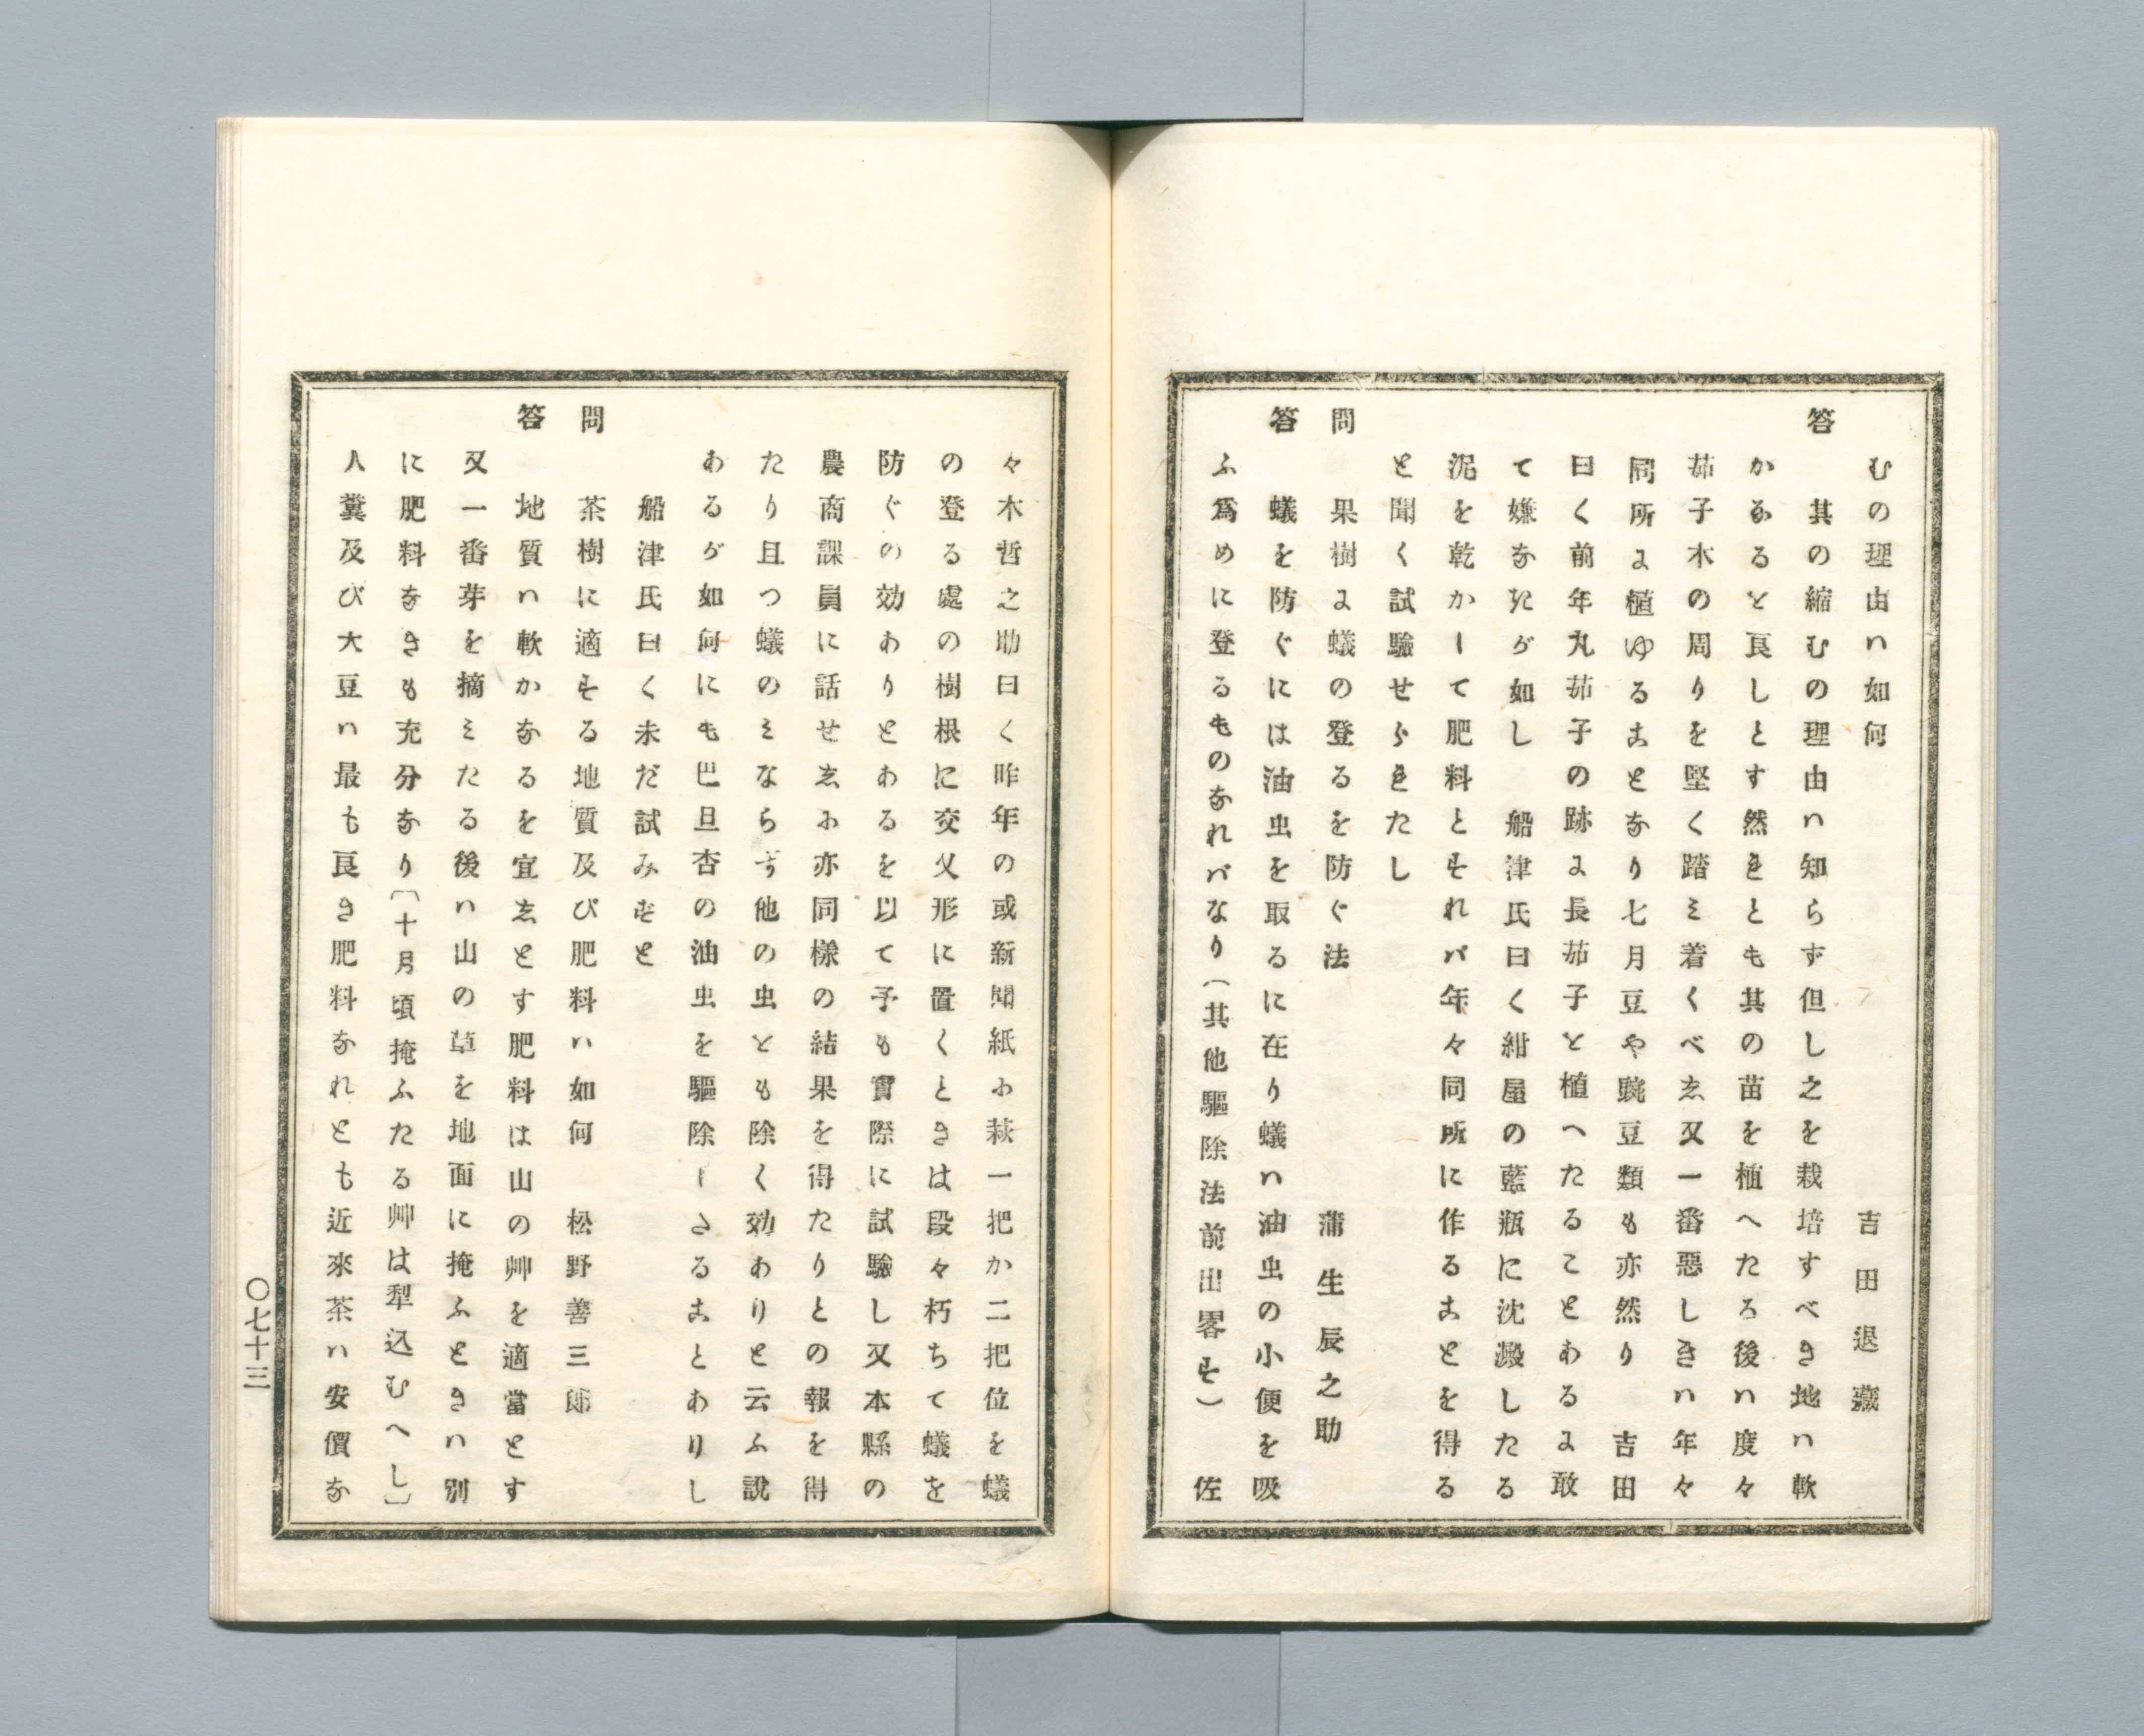 むの理由ハ如何　吉田退藏
答　其の縮むの理由ハ知らず但し之を栽培すべき地ハ軟
かなると良しとす然れとも其の苗を植へたる後ハ度々
茄子木の周りを堅く踏ミ着くべゑ又一番惡しきハ年々
同所に植ゆることなり七月豆や豌豆類も亦然り　吉田
曰く前年丸茄子の跡に長茄子と植へたることあるに敢
て嫌なきが如し　船津氏曰く紺屋の藍瓶に沈澱したる
泥を乾かして肥料とそれバ年々同所に作ることを得る
と聞く試驗せられたし
問　果樹に蟻の登るを防ぐ法　蒲生辰之助
答　蟻を防ぐには油虫を取るに在り蟻ハ油虫の小便を吸
ふ爲めに登るものなれバなり（其他驅除法前出畧そ）　佐
々木哲之助曰く昨年の或新聞紙に萩一把か二把位を蟻
の登る處の樹根に交乂形に置くときは段々朽ちて蟻を
防ぐの効ありとあるを以て予も實際に試驗し又本縣の
農商課員に話せゑに亦同樣の結果を得たりとの報を得
たり且つ蟻のミならず他の虫とも除く効ありと云ふ說
あるが如何にも巴旦杏の油虫を驅除しさることありし
船津氏曰く未だ試みずと
問　茶樹に適そる地質及び肥料ハ如何　松野善三郎
答　地質ハ軟かなるを宜ゑとす肥料は山の艸を適當とす
又一番芽を摘ミたる後ハ山の草を地面に掩ふときハ別
に肥料なきも充分なり〔十月頃掩ふたる艸は犁込むへし〕
人糞及び大豆ハ最も良き肥料なれとも近來茶ハ安價な
〇七十三